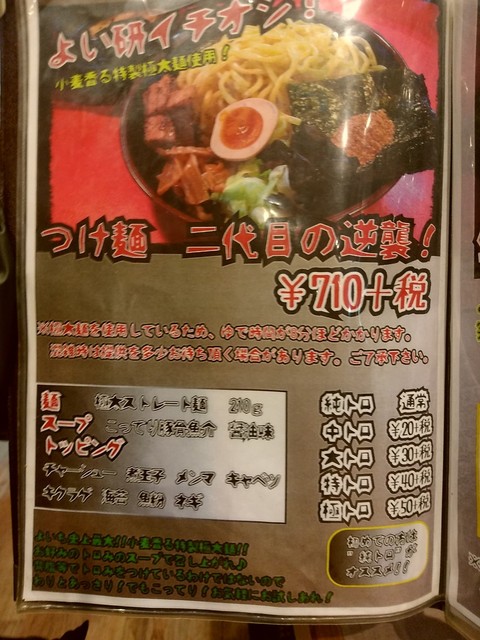 よい研イチオシ!
小麦香る特製極太麺使用!
つけ麺 二代目の逆襲!
¥710+税
※極太麺を使用しているため、ゆで時間が8分ほどかかります。
混雑時は提供を多少お待ち頂く場合があります。ご了承下さい。
麺 極太ストレート麺 210g
スープ こってり豚骨魚介 醤油味
トッピング
チャーシュー 煮玉子 メンマ キャベツ
キクラゲ 海苔 魚粉 ネギ
純トロ 通常
中トロ ¥20+税
大トロ ¥30+税
特トロ ¥40+税
極トロ ¥50+税
初めての方は
"純トロ"が
オススメ!!
よいち史上最太!!小麦香る特製極太麺!!
お好みのトロみのスープで召し上がれ♪
骨粉等でトロみをつけているわけではないので
わりとあっさり!でもこってり!お気軽にお試しあれ!